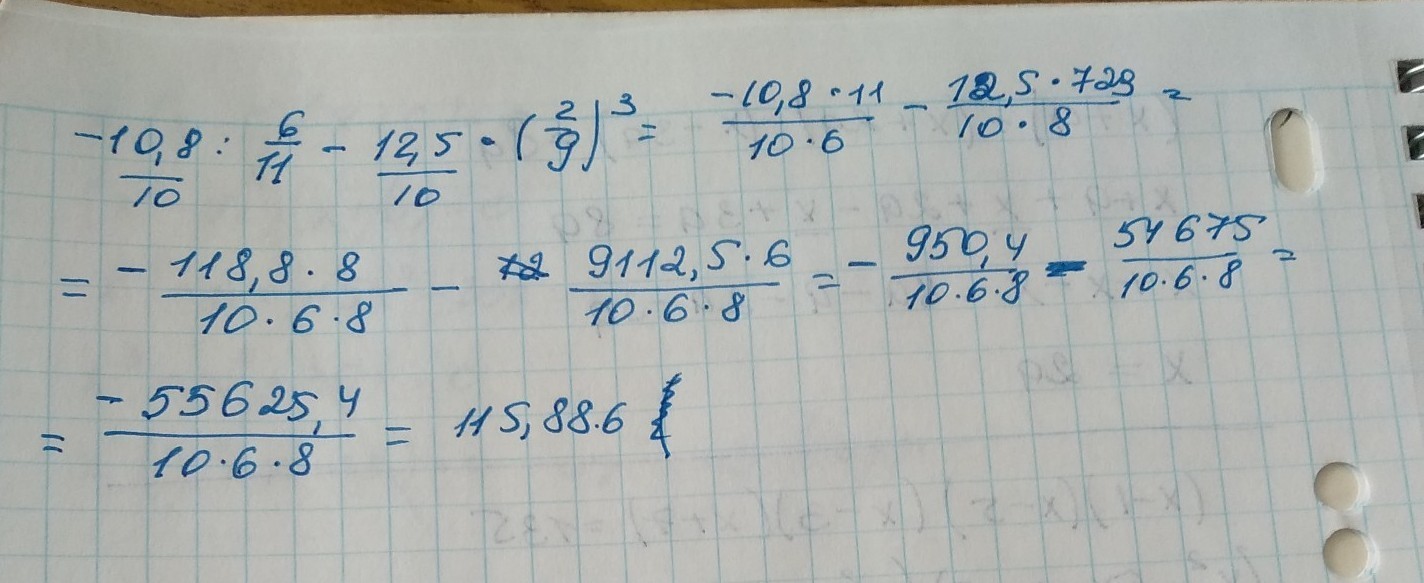 -10,8/10 : 6/11 - 12,5/10 · (2/9)^3 = -10,8·11/10·6 - 12,5·729/10·8 =
= - 118,8·8/10·6·8 - 9112,5·6/10·6·8 = - 950,4/10·6·8 - 54675/10·6·8 =
= -55625,4/10·6·8 = 115,88.6